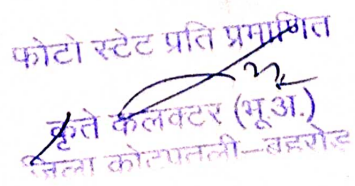 फोटो स्टेट प्रति प्रमाणित
कृते कलक्टर (भू.अ.)
जिला कोटपूतली–बहरोड़